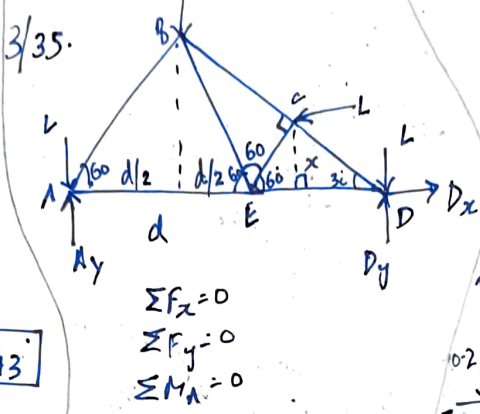 3/35.
B
C
L
L
L
60
60
d/2
d/2
60
60
x
30
A
E
D
Dx
d
Ay
Dy
ΣFx=0
ΣFy=0
ΣMA=0